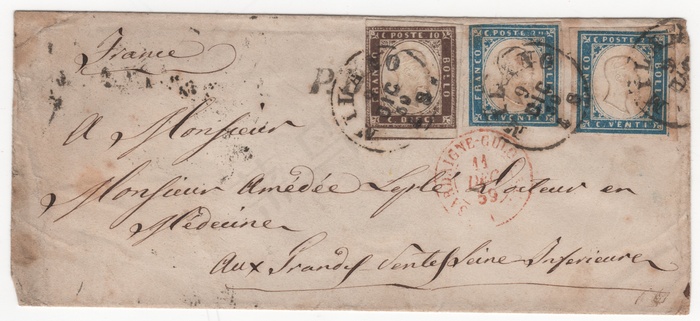 France
C. POSTE 10
FRANCO
BOLLO
C. DIECI
C. POSTE 20
FRANCO
BOLLO
C. VENTI
C. POSTE 20
BOLLO
C. VENTI
MILANO
9
DIC
59
11
DEC
59
A Monsieur
Monsieur Amédée Leplé Docteur en
Médecine
Aux Grandes Ventes Seine Inferieure